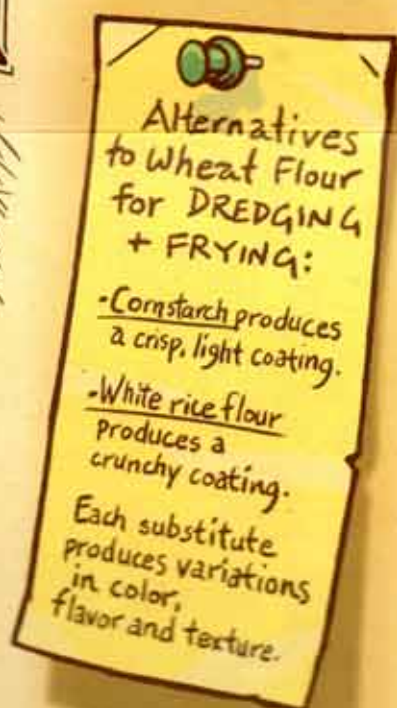 Alternatives
to Wheat Flour
for DREDGING
+ FRYING:
•Cornstarch produces
a crisp, light coating.
•White rice flour
produces a
crunchy coating.
Each substitute
produces variations
in color,
flavor and texture.